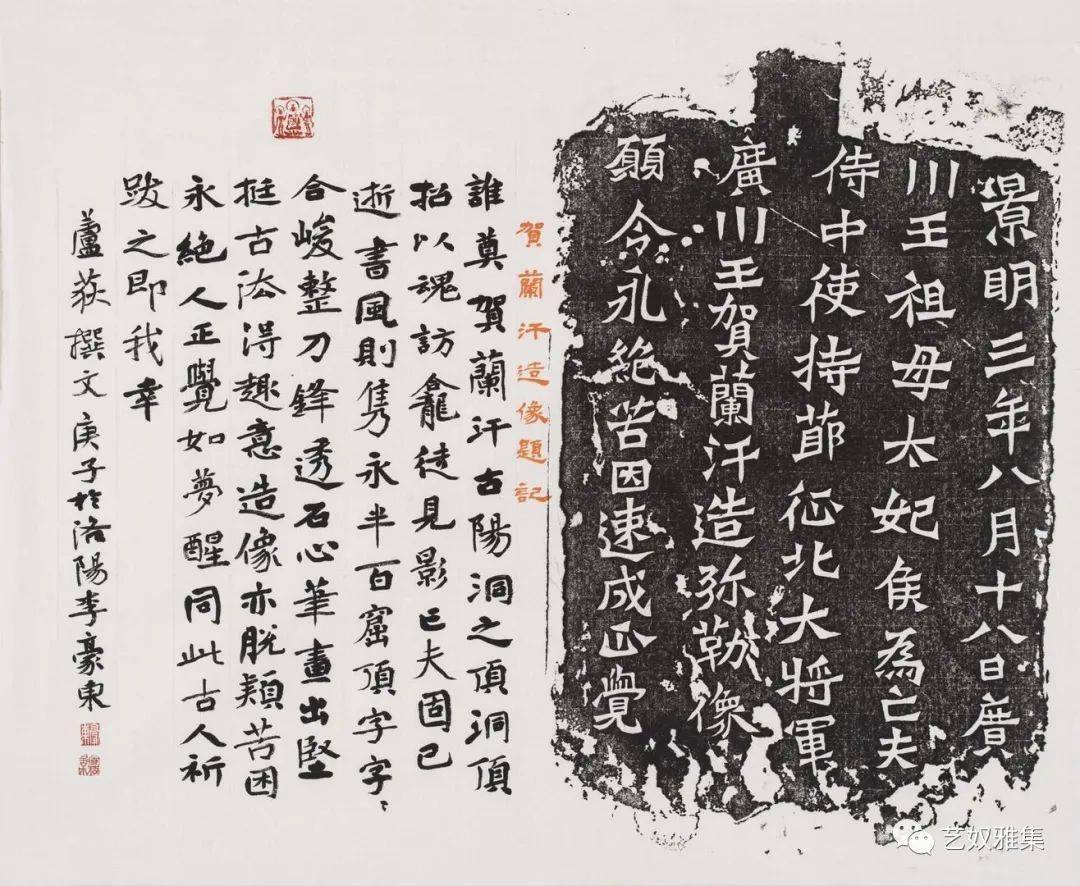 景明三年八月十八日廣
川王祖母太妃侯為亡夫
侍中使持節征北大將軍
廣川王賀蘭汗造弥勒像
願令永絕苦因速成正覺
賀蘭汗造像題記
誰奠賀蘭汗古陽洞之頂洞頂
招以魂訪龕徒見影亡夫固已
逝書風則隽永半百窟頂字字、
合峻整刀鋒透石心筆畫出堅
挺古法得趣意造像亦脫穎苦因
永絕人正覺如夢醒同此古人祈
跋之即我幸
蘆荻撰文庚子於洛陽李豪東
艺奴雅集